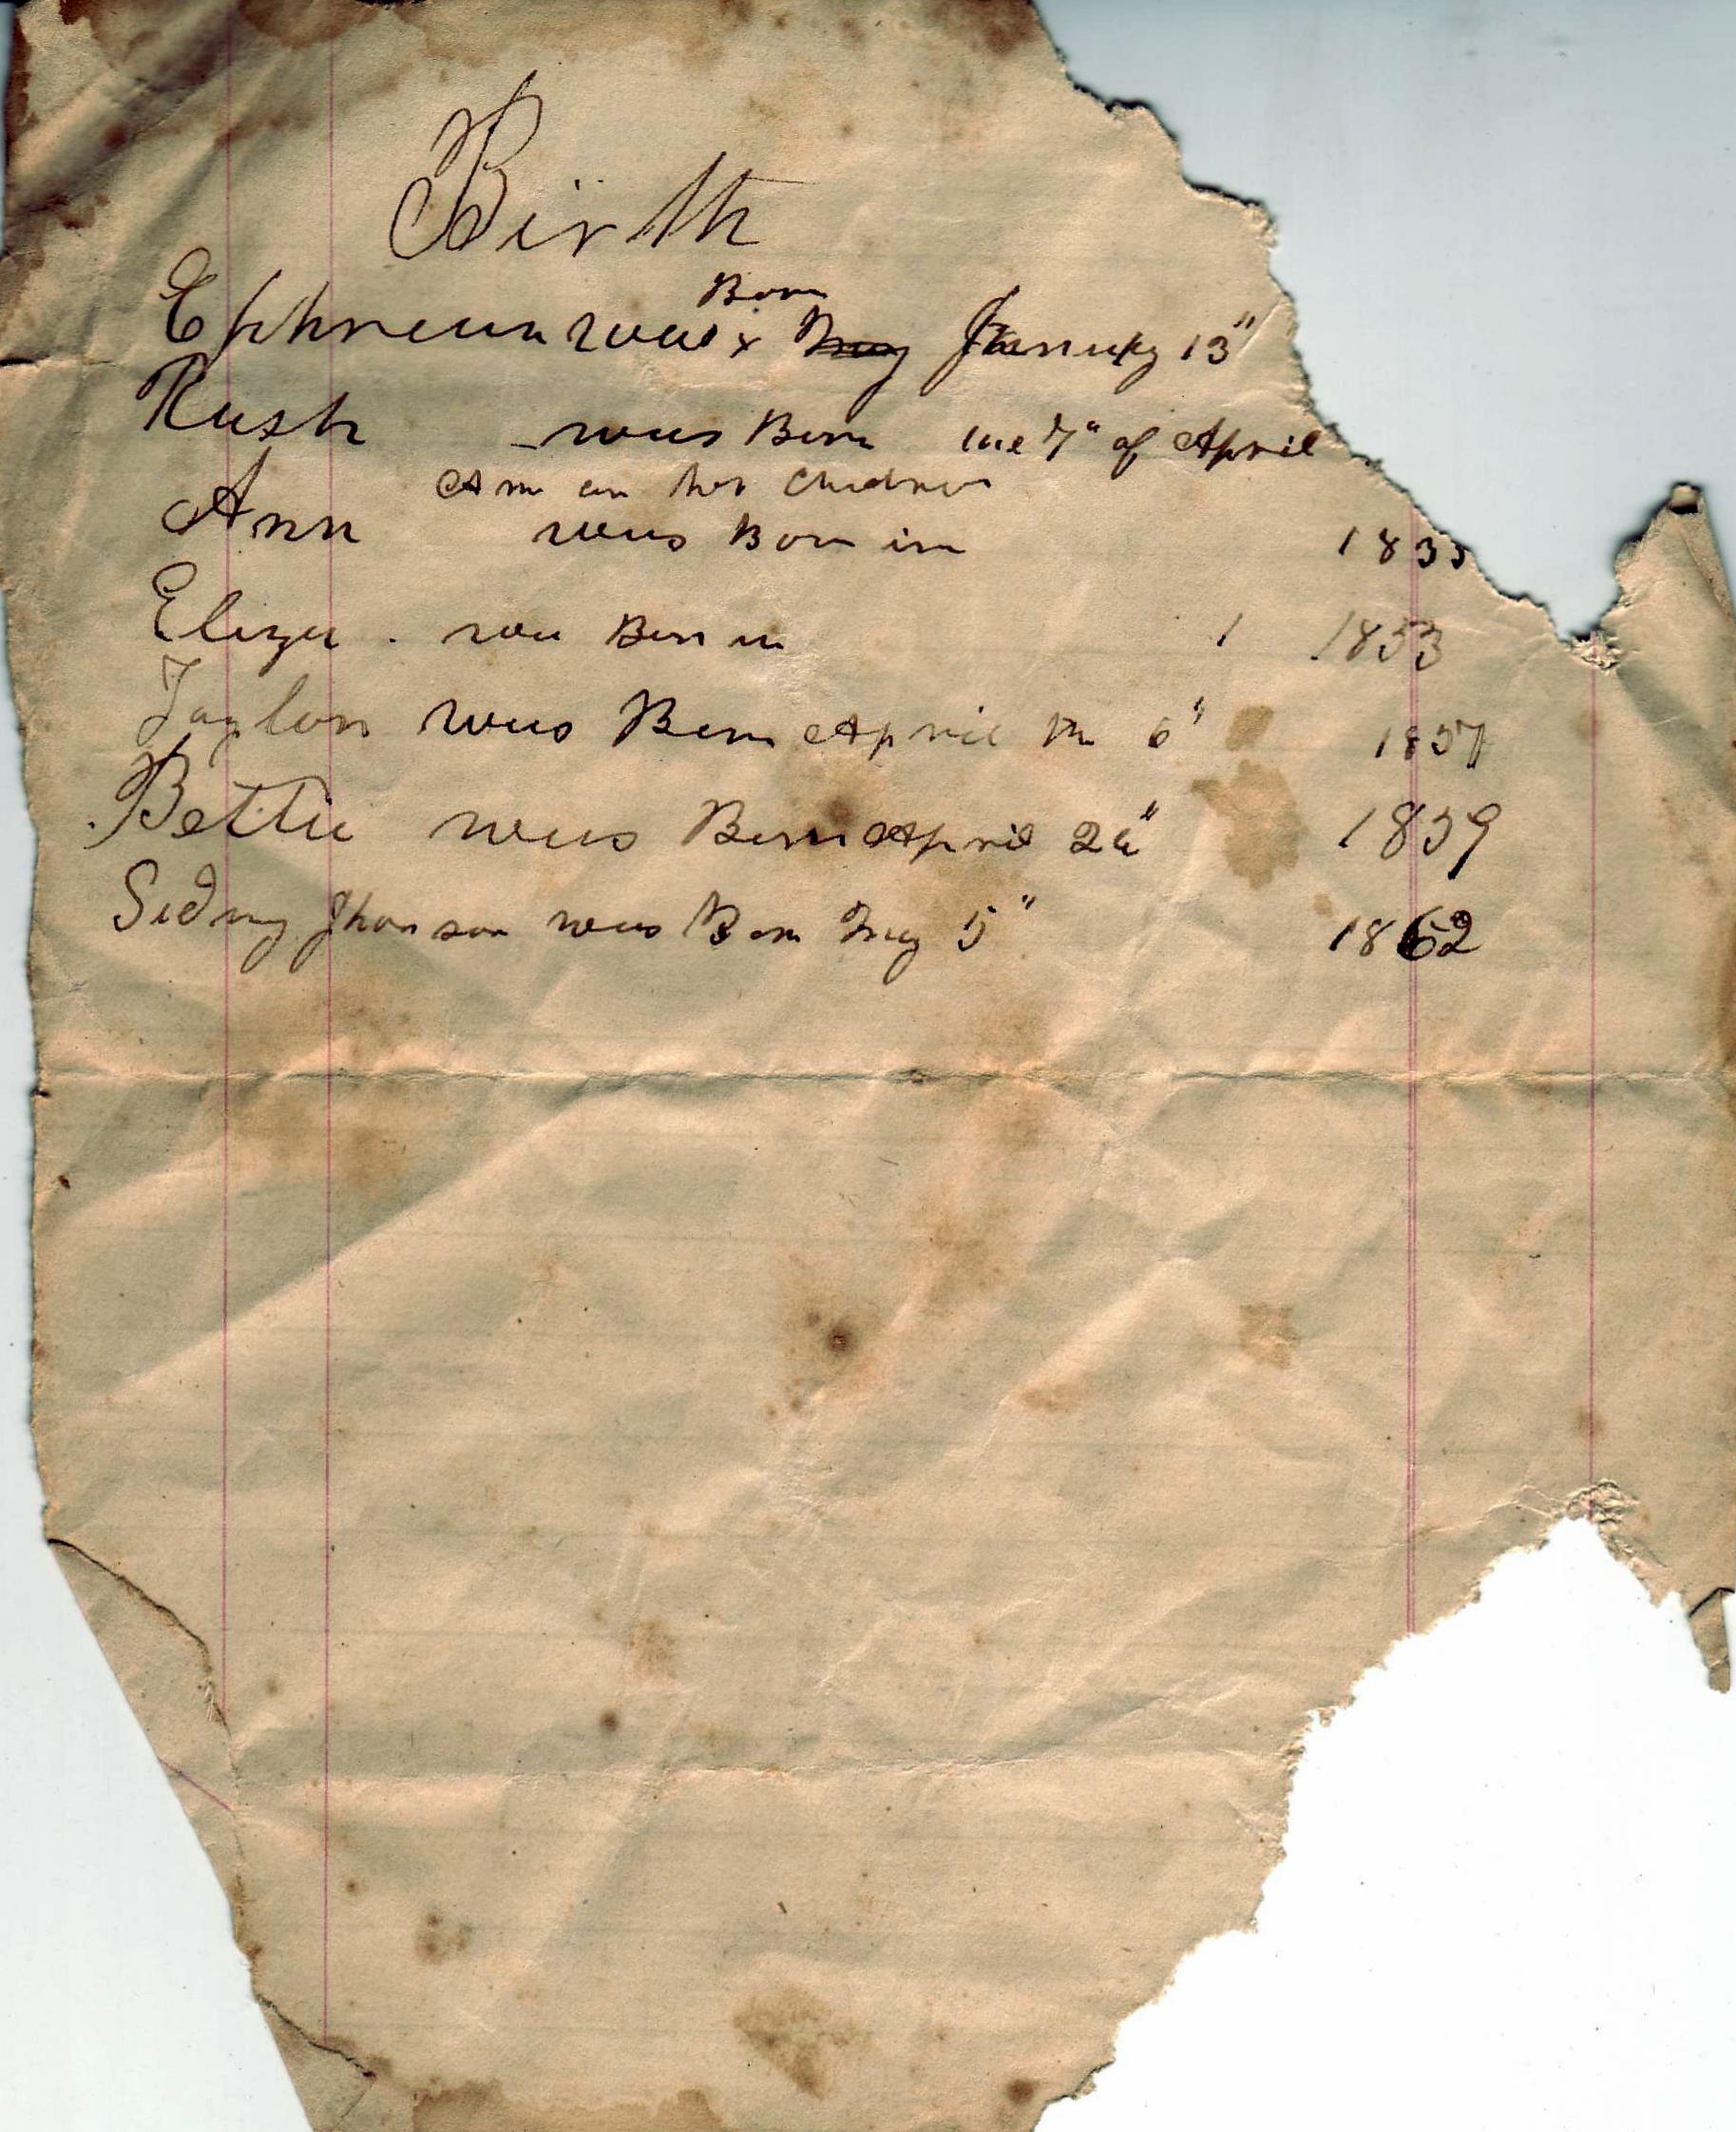 Birth
Born
Ephreum was x May January 13"
Rush was Born the 7" of April
Ann an her Children
Ann was Born in 1835
Eliza . was Born in 1 1853
Taylor was Born April the 6" 1857
Bettie was Born April 24" 1859
Sidny Jhonson was Born May 5" 1862